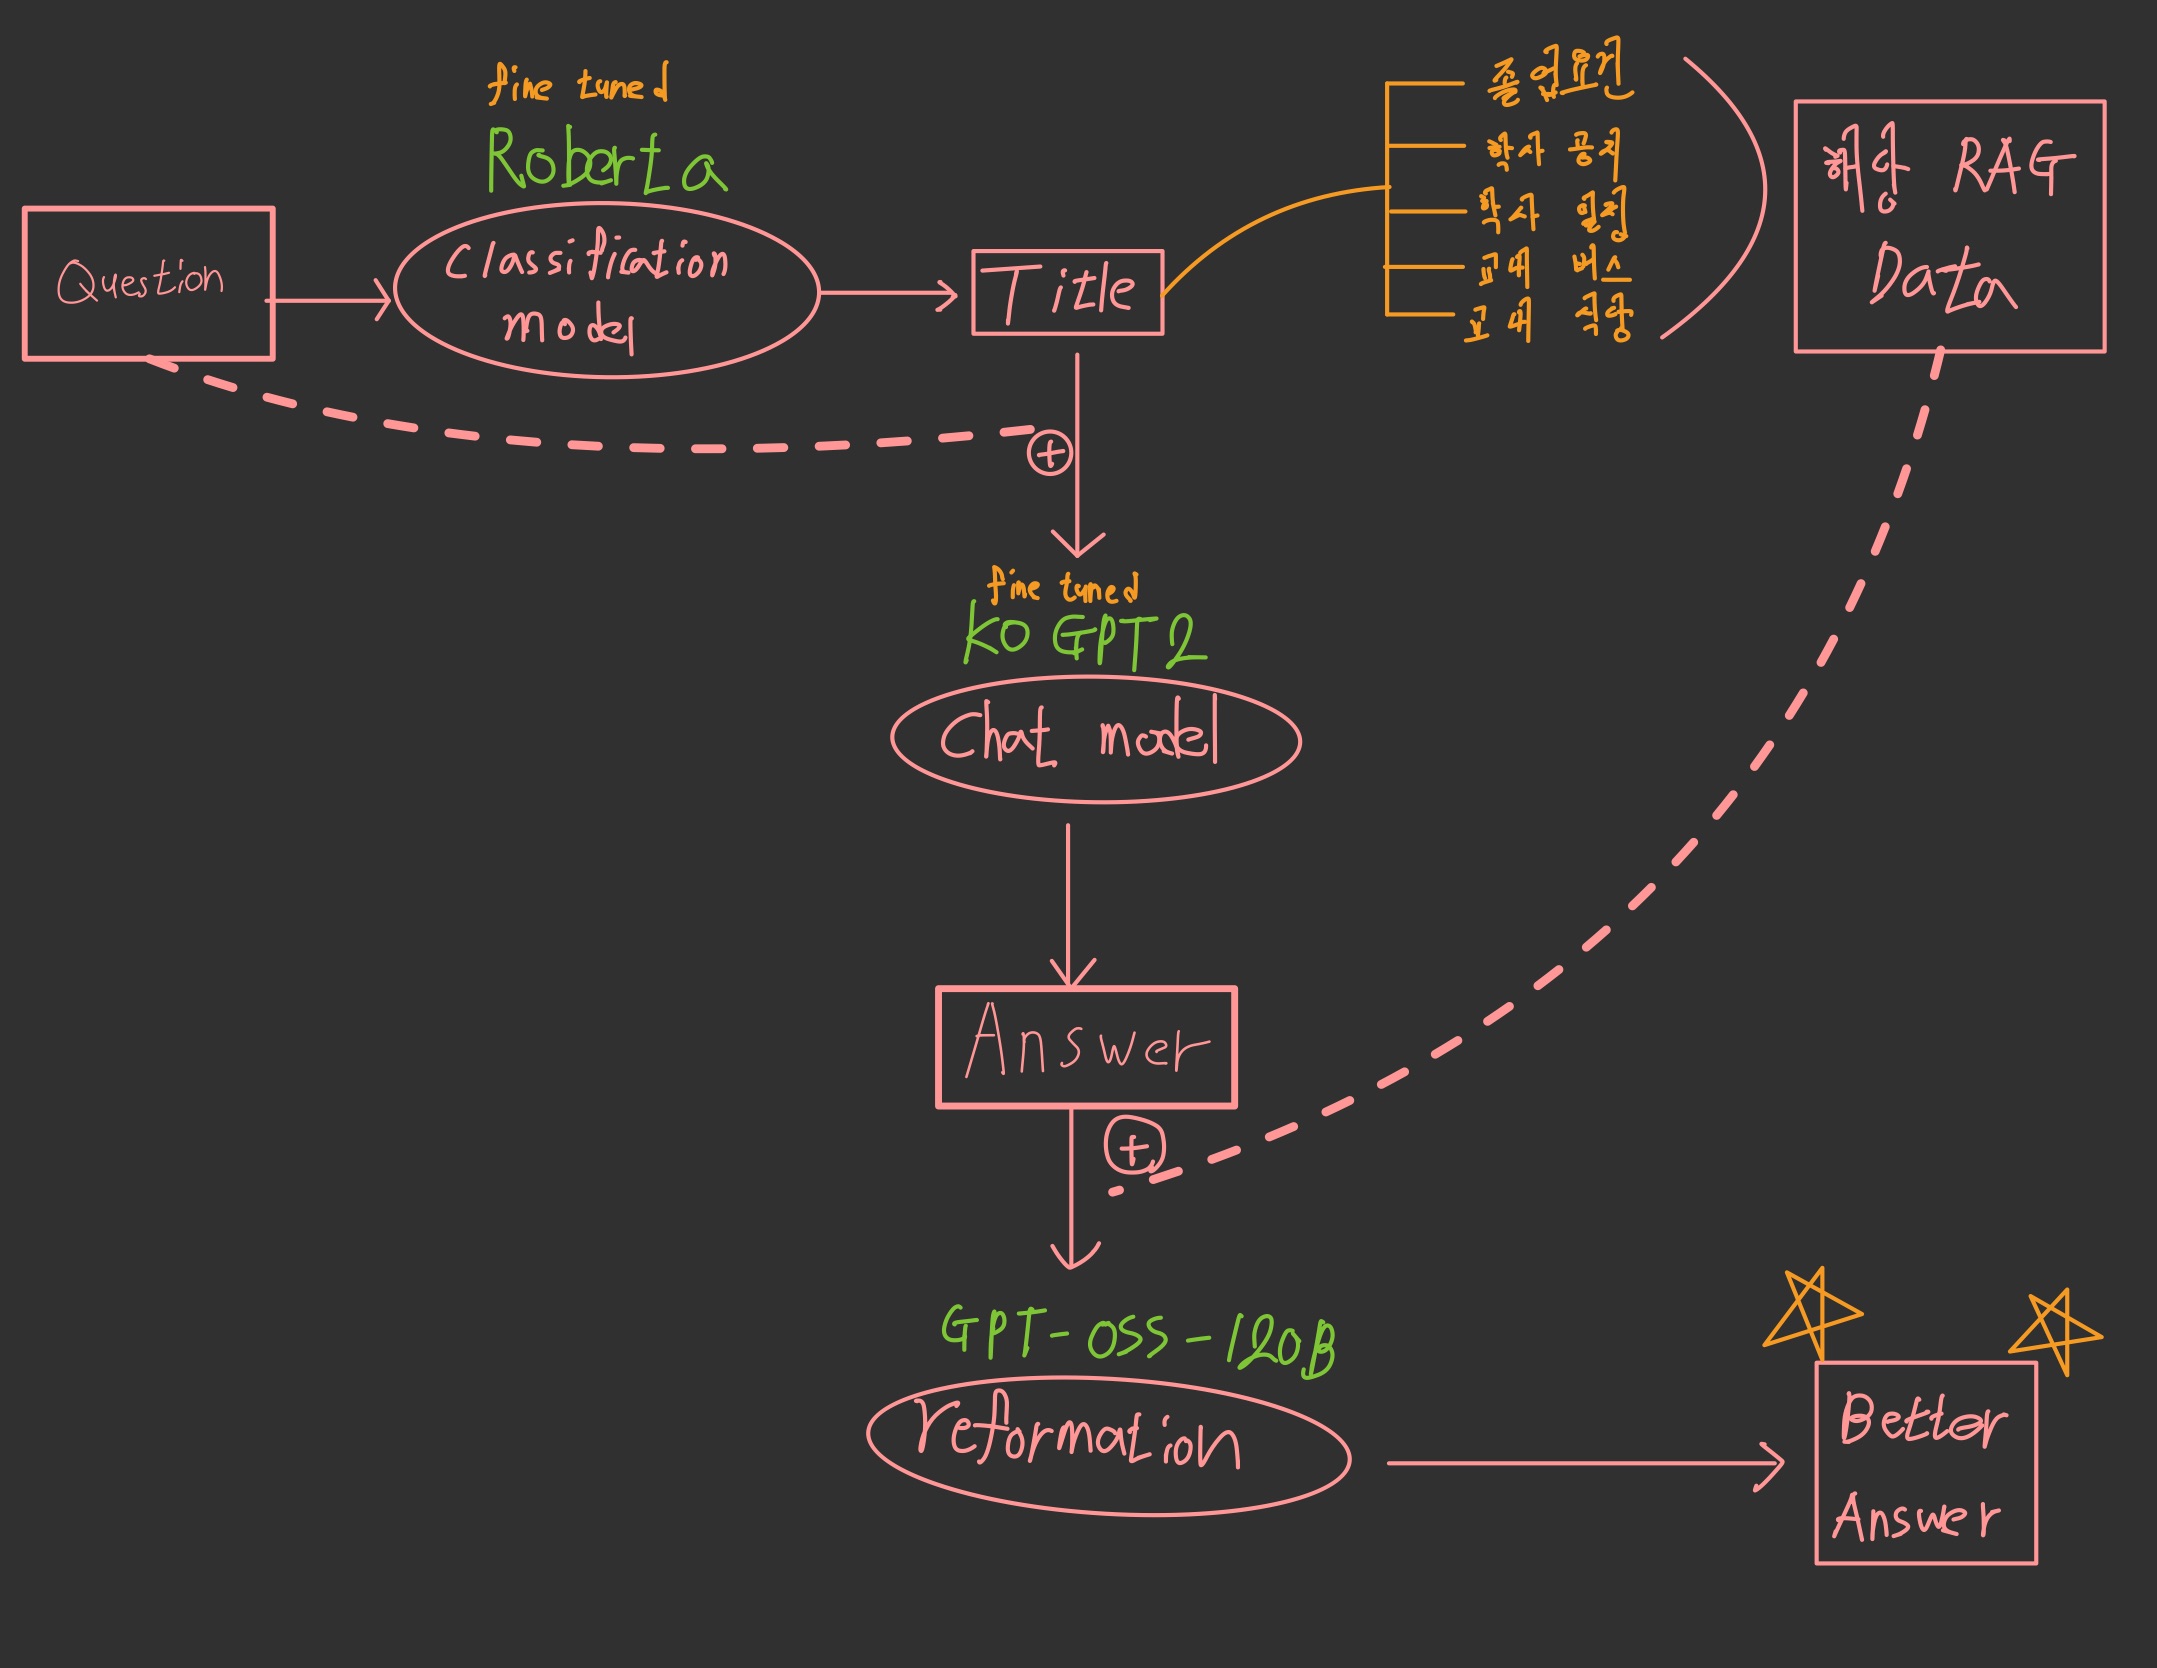 fine tuned
Roberta
Question
Classification
model
Title
졸업요건
학사 공지
학사 일정
교내 버스
교내 식당
해당 RAG
Data
+
fine tuned
KO GPT2
Chat model
Answer
+
GPT-OSS-120B
reformation
Better
Answer